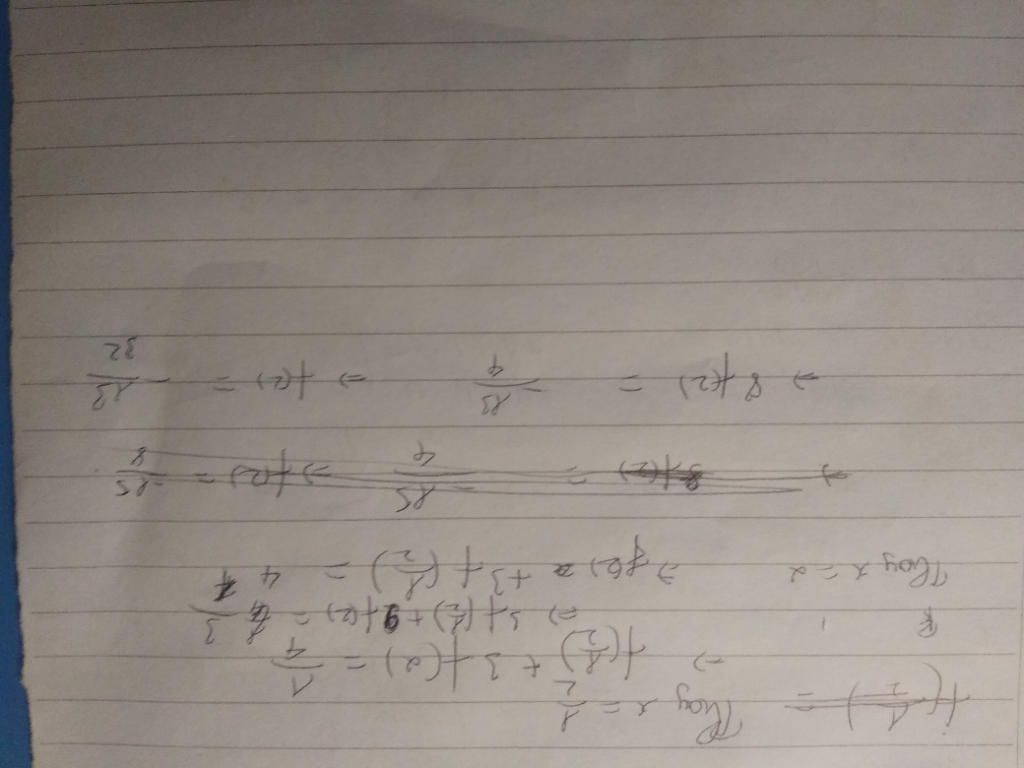 f(1/2) = Thay x = 1/2
⇒ f(1/2) + 3f(2) = 1/4
⇒ 3f(1/2) + 9f(2) = 3/4
Thay x = 2 ⇒ f(2) + 3f(1/2) = 4
⇒ 8f(2) = -13/4 ⇒ f(2) = -13/32